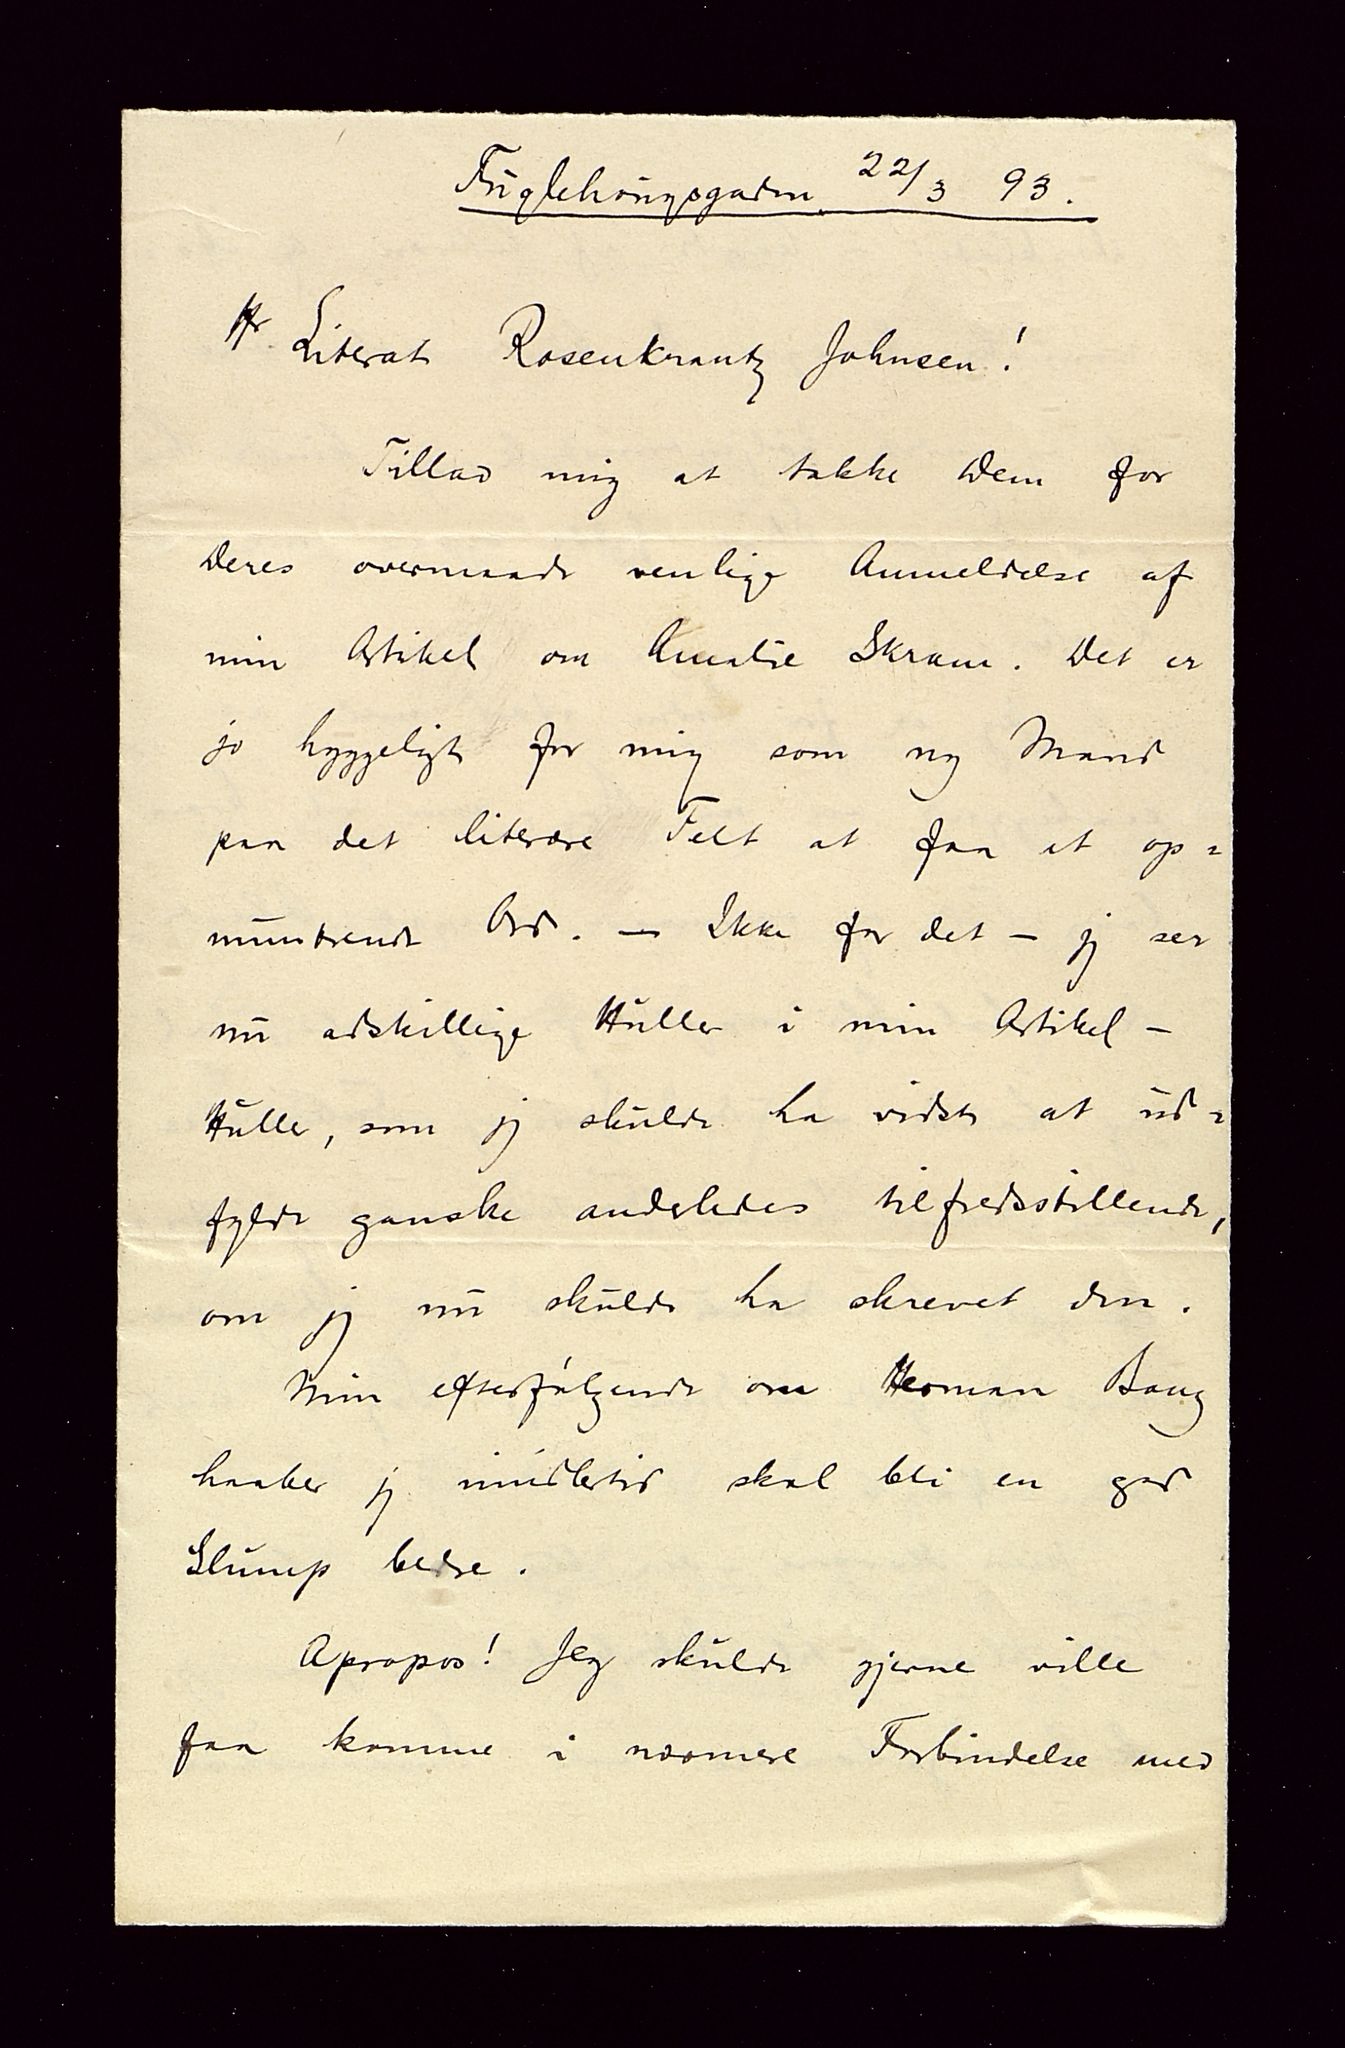 Fuglehaugsgaden 22/3 93.
Hr. Literat Rosenkrantz Johnsen!
Tillad mig at takke Dem for
Deres overmaade venlige Anmeldelse af
min Artikel om Amalie Skram. Det er
jo hyggeligt for mig som ny Mand
paa det literære Felt at faa et op=
muntrende Ord. – Ikke for det – jeg ser
nu adskillige Huller i min Artikel –
Huller, som jeg skulde ha vidst at ud=
fylde ganske anderledes tilfredsstillende,
om jeg nu skulde ha skrevet den.
Min efterfølgende om Herman Bang
haaber jeg imidlertid skal bli en god
Slump bedre.
Apropos! Jeg skulde gjerne ville
faa komme i nærmere Forbindelse med